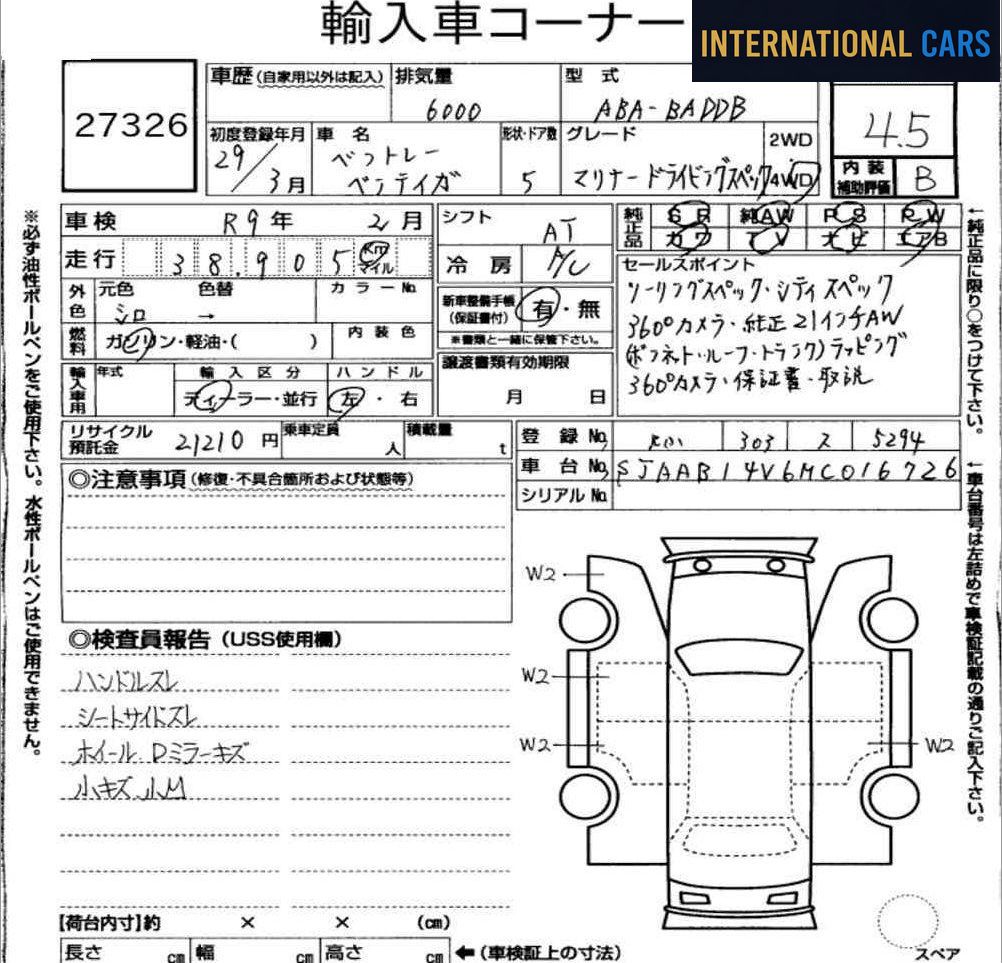 輸入車コーナー
INTERNATIONAL CARS
27326
車歴(自家用以外は記入) 排気量 型 式
6000 ABA-BADDB
4.5
初度登録年月 車 名 形状・ドア数 グレード 2WD
29/3月 ベントレー ベンテイガ 5 マリナードライビングスペック 4WD
内装補助評価 B
車検 R9年 2月
走行 38,905 km マイル
外色 元色 色替 カラーNo.
シロ →
燃料 ガソリン・軽油・( ) 内装色
輸入車用 年式 輸入区分 ハンドル
ディーラー・並行 左・右
シフト AT
冷房 A/C
新車整備手帳(保証書付) 有・無
※書類と一緒に保管下さい。
譲渡書類有効期限
月 日
純正品 SR 純AW PS PW
カワ TV ナビ エアB
セールスポイント
ツーリングスペック・シティスペック
360°カメラ・純正21インチAW
(ボンネット・ルーフ・トランク)ラッピング
360°カメラ・保証書・取説
リサイクル預託金 21210円 乗車定員 人 積載量 t
登録No. 303 ス 5294
車台No. SJAAB14V6MC016726
シリアルNo.
◎注意事項(修復・不具合箇所および状態等)
◎検査員報告(USS使用欄)
ハンドルスレ
シートサイドスレ
ホイール Dミラーキズ
小キズ 小M
W2
W2
W2
W2
【荷台内寸】約 × × (cm)
長さ cm 幅 cm 高さ cm ←(車検証上の寸法)
スペア
※必ず油性ボールペンをご使用下さい。水性ボールペンはご使用できません。
←純正品に限り○をつけて下さい。
←車台番号は左詰めで車検証記載の通りご記入下さい。